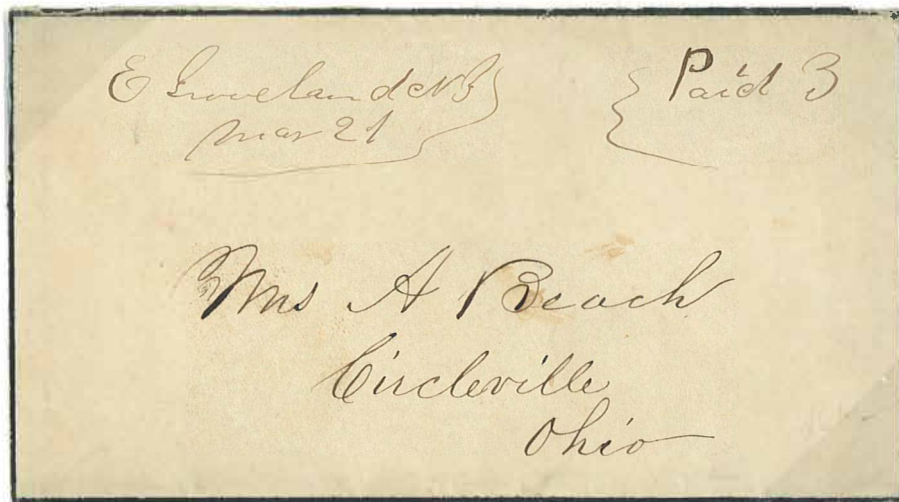 E Groveland NY
Mar 21
Paid 3
Mrs A Beach
Circleville
Ohio